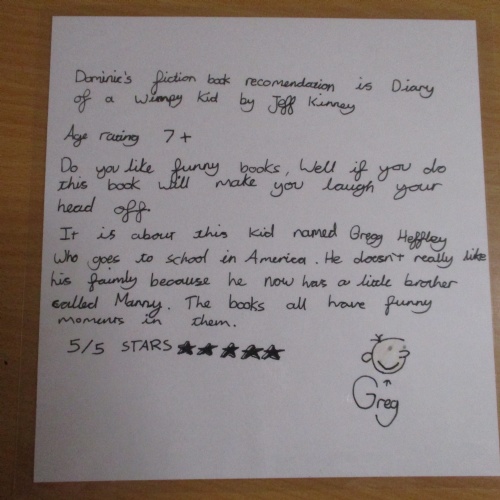 Dominic's fiction book recomendation is Diary
of a Wimpy Kid by Jeff Kinney
Age rating 7+
Do you like funny books, Well if you do
this book will make you laugh your
head off
It is about this kid named Greg Heffley
who goes to school in America. He doesn't really like
his faimly because he now has a little brother
called Manny. The books all have funny
moments in them.
5/5 STARS ★★★★★
Greg